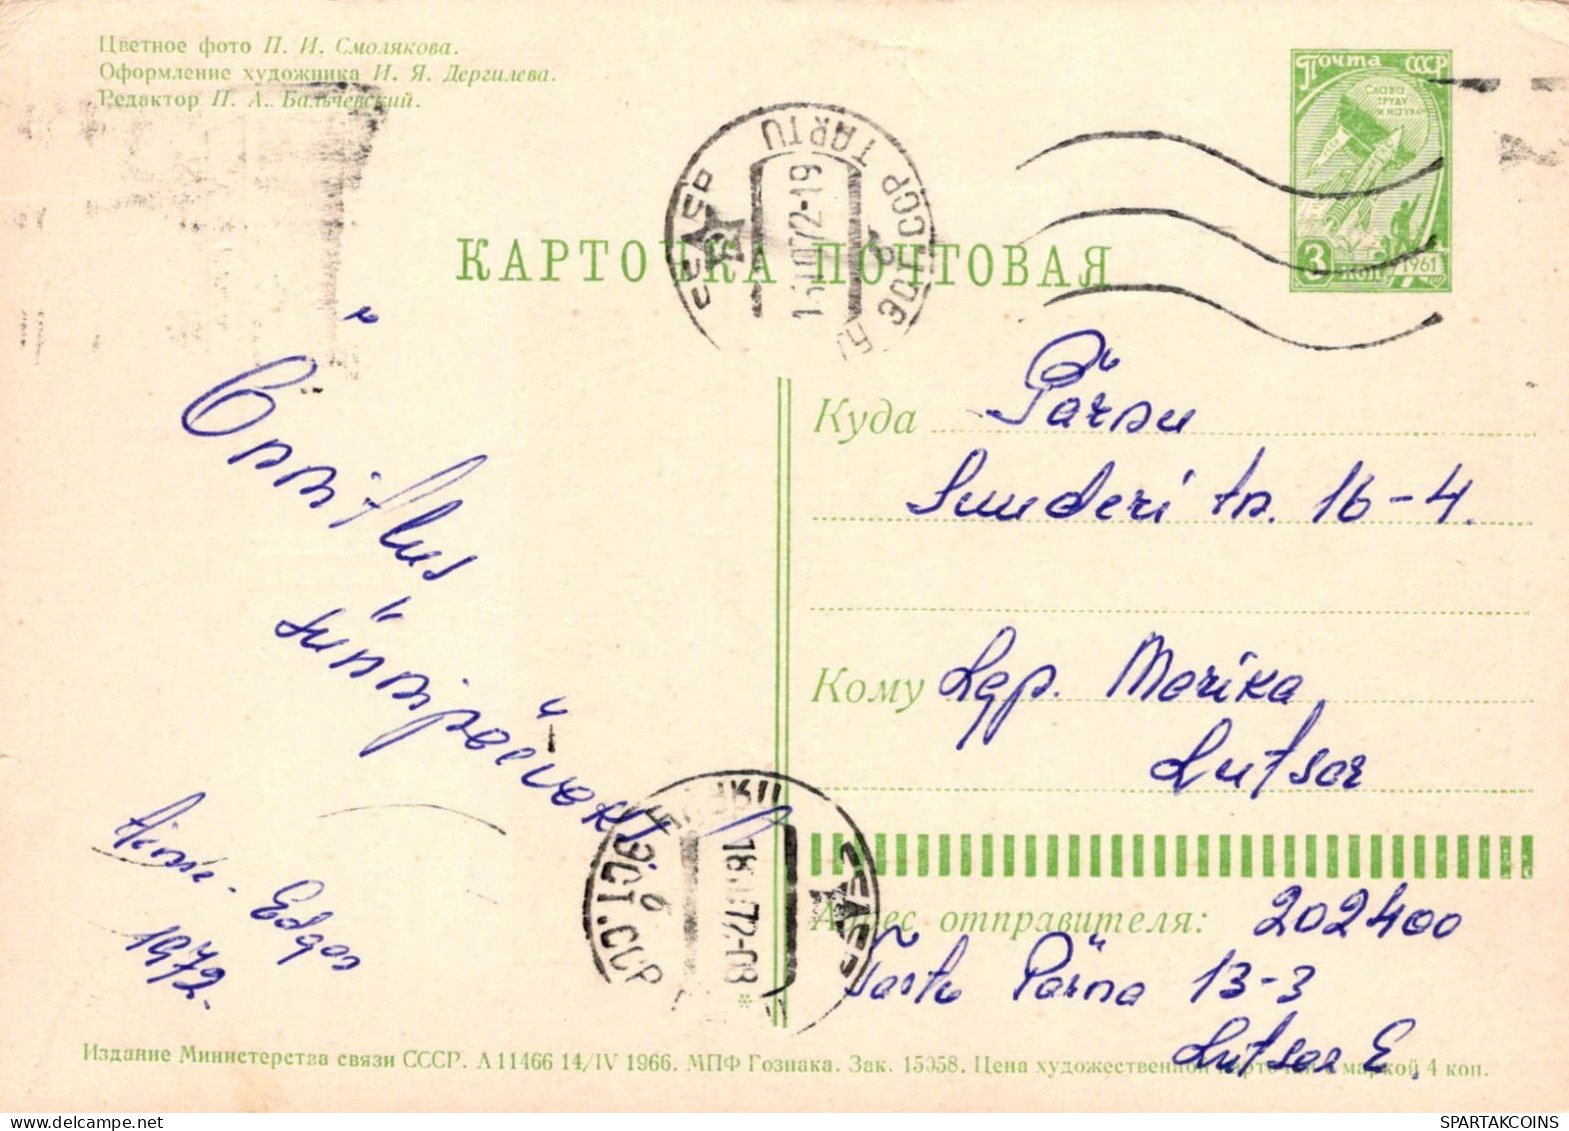 Цветное фото П. И. Смолякова.
Оформление художника И. Я. Дергилева.
Редактор П. А. Бальчевский.
Почта СССР
СЛАВА
ТРУДУ
И НАУКЕ
3
КОП
1961
КАРТОЧКА ПОЧТОВАЯ
ЭСТ. ССР TARTU
72-19
Õnnitlus
sünnipäevaks!
Aime. Edgar
1972.
Куда Pärnu
Suuderi tn. 16-4.
Кому Lgp. Merika
Lutsar
ЭСТ. ССР
Адрес отправителя: 202400
Tartu Pärna 13-3
Lutsar E.
Издание Министерства связи СССР. А 11466 14/IV 1966. МПФ Гознака. Зак. 15058. Цена художественной карточки с маркой 4 коп.
SPARTAKCOINS.COM